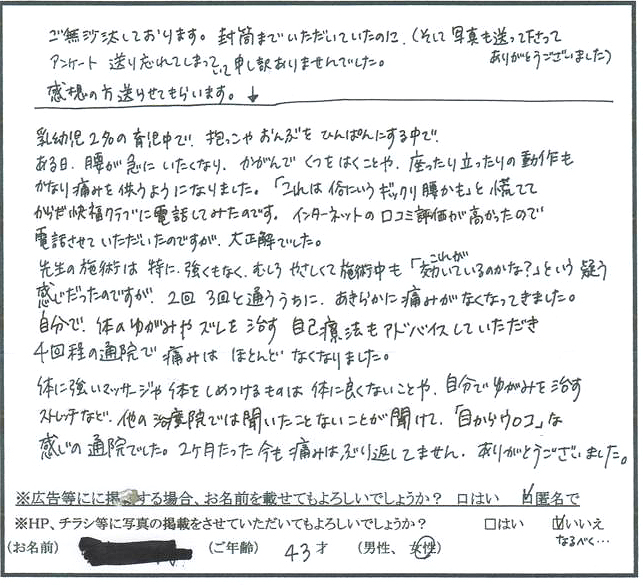 ご無沙汰しております。封筒までいただいていたのに、(そして写真も送って下さって
ありがとうございました)
アンケート送り忘れてしまっていて申し訳ありませんでした。
感想の方送らせてもらいます。↓
乳幼児2名の育児中で、抱っこやおんぶをひんぱんにする中で、
ある日、腰が急にいたくなり、かがんでくつをはくことや、座ったり立ったりの動作も
かなり痛みを伴うようになりました。「これは俗にいうギックリ腰かも」と慌てて
からだ快福クラブに電話してみたのです。インターネットの口コミ評価が高かったので
電話させていただいたのですが、大正解でした。
先生の施術は特に、強くもなく、むしろやさしくて施術中も「これが効いているのかな?」という疑う
感じだったのですが、2回3回と通ううちに、あきらかに痛みがなくなってきました。
自分で、体のゆがみやズレを治す自己療法もアドバイスしていただき
4回程の通院で痛みはほとんどなくなりました。
体に強いマッサージや体をしめつけるものは体に良くないことや、自分でゆがみを治す
ストレッチなど、他の治療院では聞いたことないことが聞けて、「目からウロコ」な
感じの通院でした。2ヶ月たった今も痛みは、ぶり返してません。ありがとうございました。
※広告等にに する場合、お名前を載せてもよろしいでしょうか? □はい ☑匿名で
※HP、チラシ等に写真の掲載をさせていただいてもよろしいでしょうか? □はい ☑いいえ
なるべく…
(お名前) (ご年齢) 43才 (男性、女性)